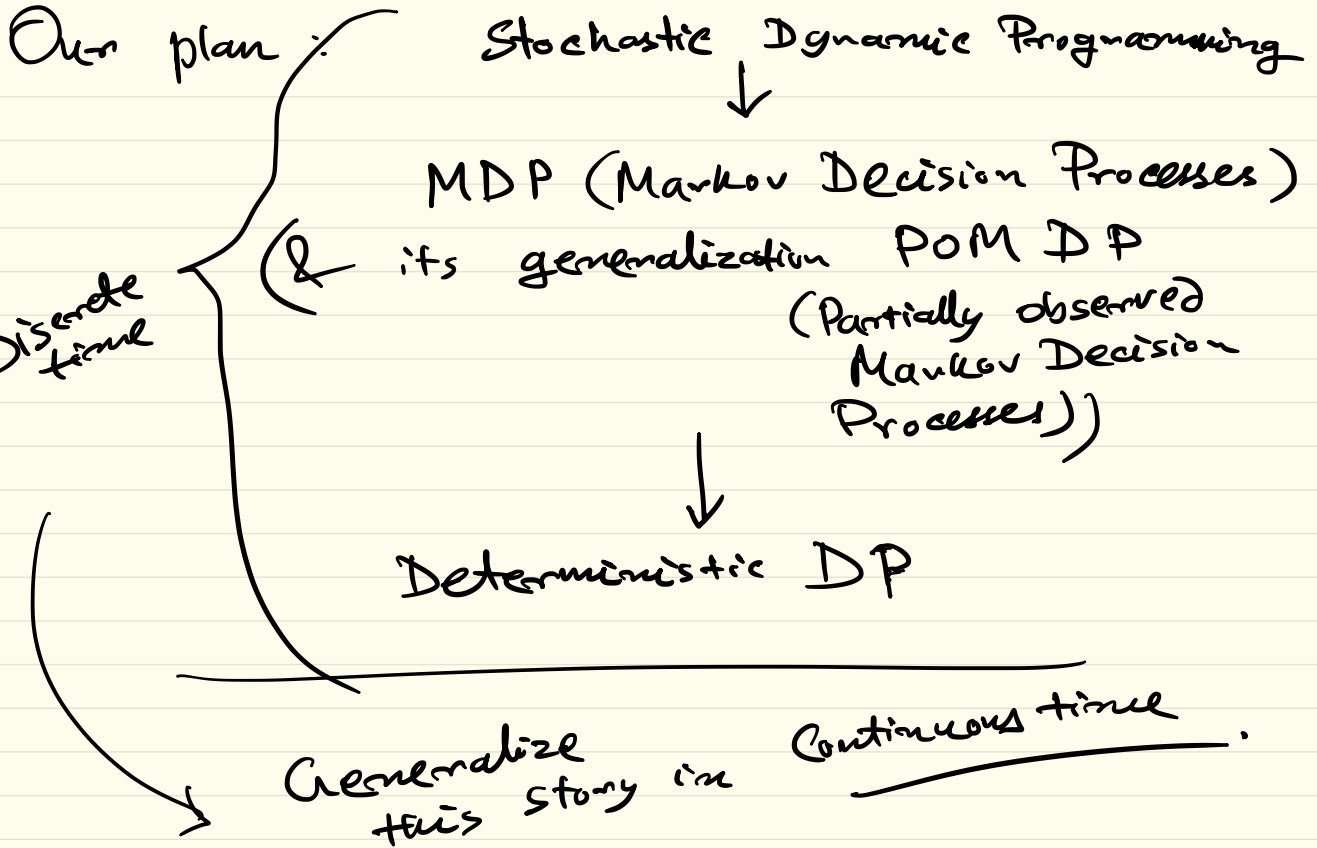 Our plan : Stochastic Dynamic Programming
↓
MDP (Markov Decision Processes)
(& its generalization POMDP
(Partially observed
Markov Decision
Processes))
Discrete
time
↓
Deterministic DP
Generalize
this story in Continuous time.